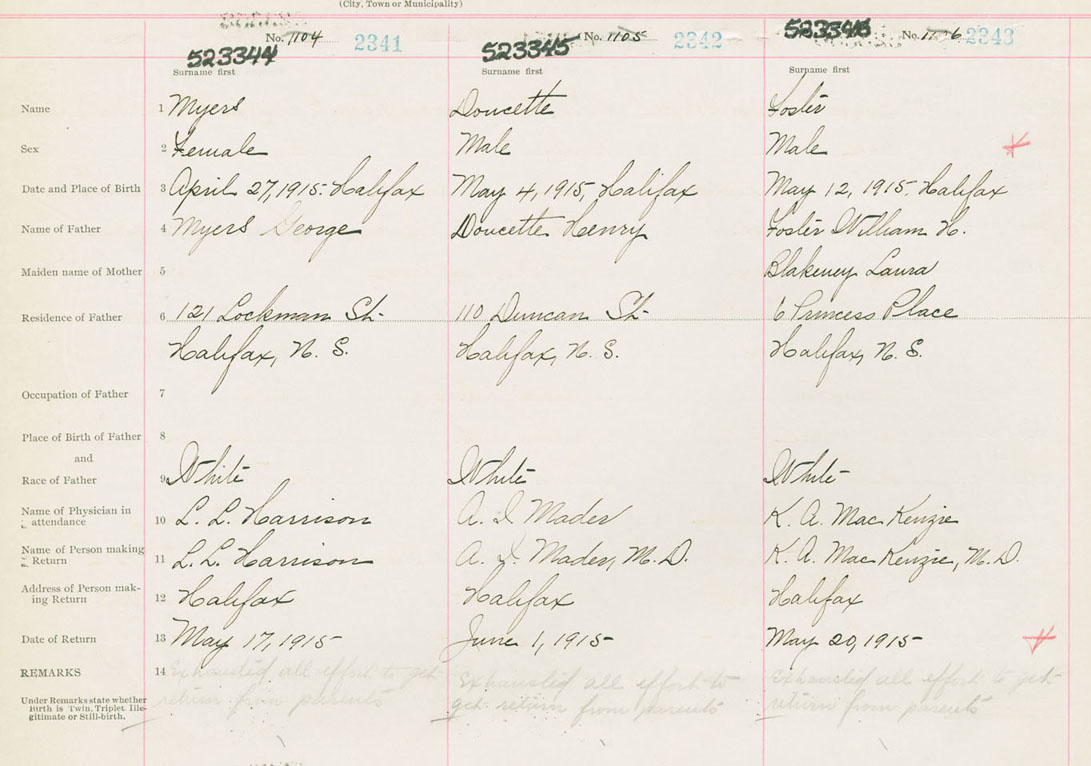 (City, Town or Municipality)
No. 1104 2341 No. 1105 2342 No. 1106 2343
523344 523345 523346
Surname first Surname first Surname first
Name 1 Myers Doucette Foster
Sex 2 Female Male Male
Date and Place of Birth 3 April 27, 1915 Halifax May 4, 1915, Halifax May 12, 1915 Halifax
Name of Father 4 Myers George Doucette Henry Foster William H.
Maiden name of Mother 5 Blakeney Laura
Residence of Father 6 121 Lockman St. 110 Duncan St. 6 Princess Place
Halifax, N. S. Halifax, N. S. Halifax, N. S.
Occupation of Father 7
Place of Birth of Father 8
and
Race of Father 9 White White White
Name of Physician in
attendance 10 L. L. Harrison A. I. Mader K. A. MacKenzie
Name of Person making
Return 11 L. L. Harrison A. I. Mader, M. D. K. A. MacKenzie, M. D.
Address of Person mak-
ing Return 12 Halifax Halifax Halifax
Date of Return 13 May 17, 1915 June 1, 1915 May 20, 1915
REMARKS 14 Exhausted all effort to get Exhausted all effort to Exhausted all effort to get
return from parents get return from parents return from parents
Under Remarks state whether
Birth is Twin, Triplet, Ille-
gitimate or Still-birth.